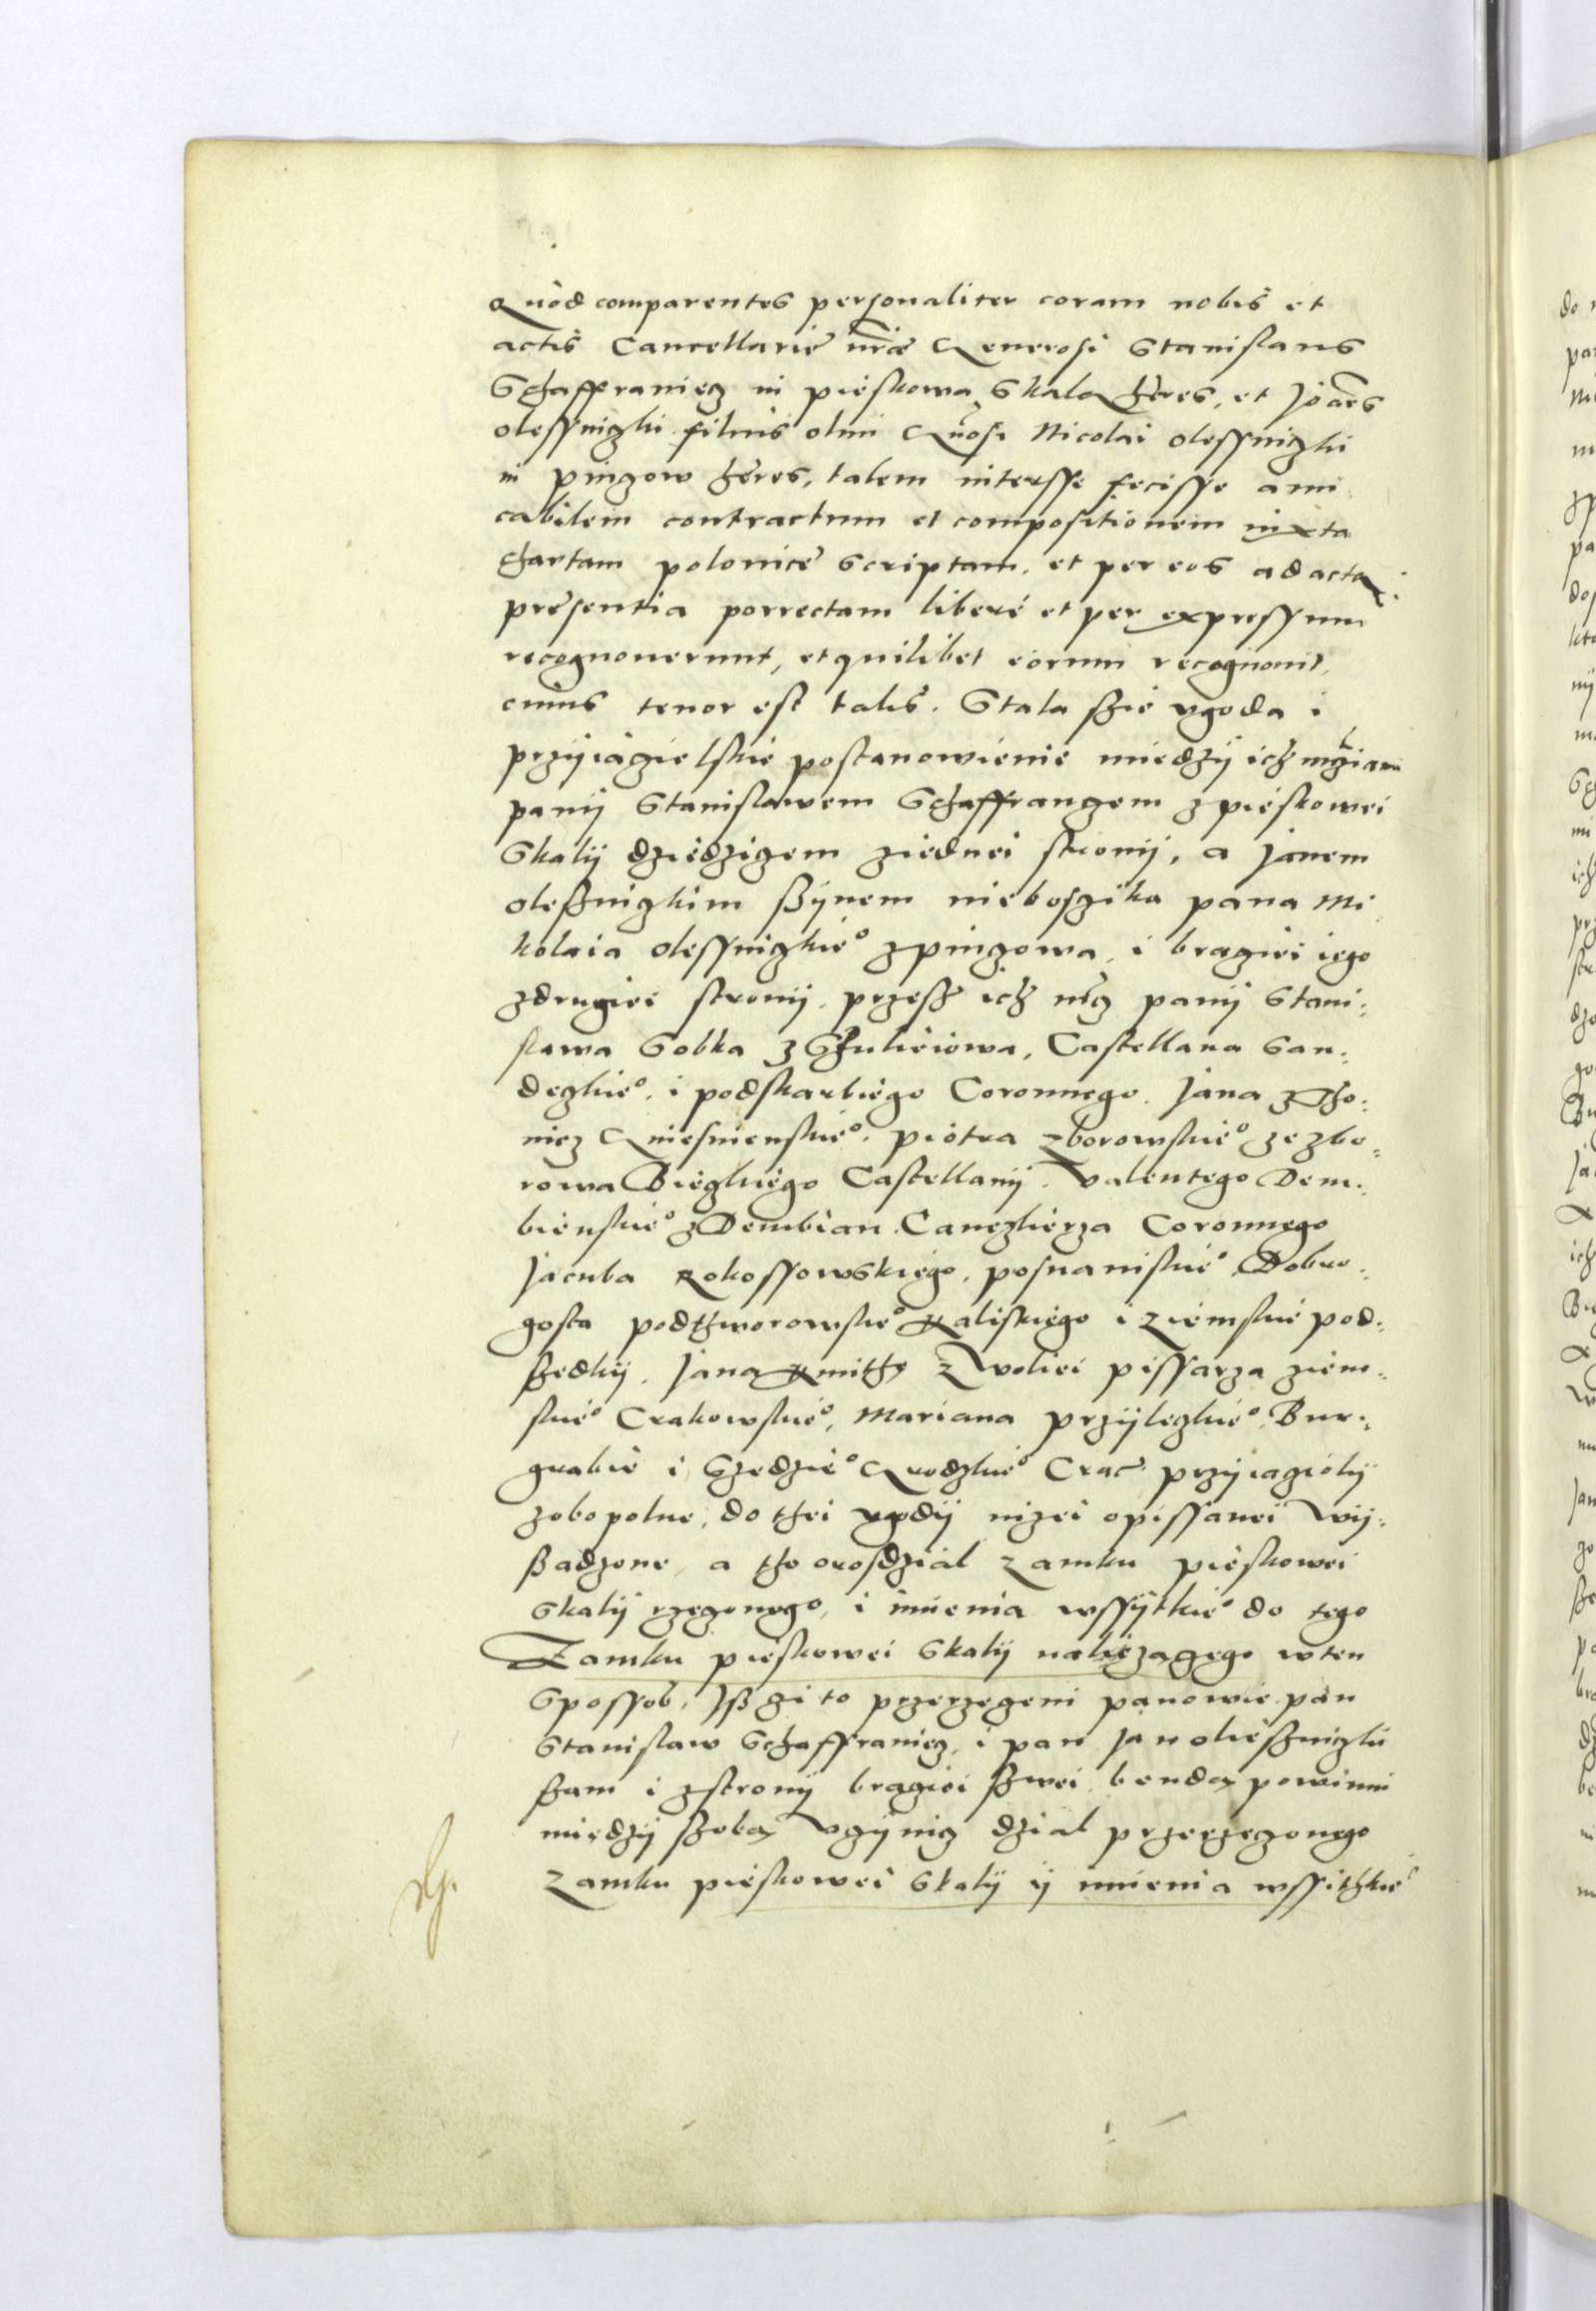 Quòd comparentes personaliter coram nobis et
actis Cancellariæ nr̃æ Generosi Stanislaus
Schaffraniecz in pieskowa Skala hęres, et Joañes
olessniczki filius olim Gñosi Nicolai olessniczki
in pinczow hęres, talem inter sse fecisse ami
cabilem contractum et compositionem iuxta
chartam polonicè scriptam, et per eos ad acta
præsentia porrectam liberè et per expressum
recognouerunt, et quilibet eorum recognouit,
cuius tenor est talis. Stala szie vgoda i
przÿiacielskie postanowienie miedzÿ ich mcziami
panÿ Stanislawem Schaffranczem z pieskowei
Skalÿ dziedziczem z iednei stronÿ, a Janem
olesznizkim sзÿnem nieboszika pana Mi
kolaia olessnizkieº z pinczowa, i braciei iego
z drugiei stronÿ, przesz ich mcz panÿ Stani:
slawa Sobka z Szulieiowa, Castellana San:
deczkieº, i podskarbiego Coronnego, Jana z Tho:
nicz Gniesnienskieº, piotra zborowskieº ze zbo:
rowa Biegkiego Castellanÿ, valentego Dem:
bienskieº z Dembian Canczlierza Coronnego
Jacuba Rokossowskiego, posnanskieº, Dobro:
gosta podthworowskieº Kaliskiego i ziemskie pod:
szedkÿ, Jana Kmithÿ z Woliei pissarza ziem:
skieº Crakowskieº, Mariana przÿleczkieº Bur:
grabie i Szedzieº Grodzkieº Crac̃ przÿiaciolÿ
zobopolne, do thei vgodÿ nizei opissanei wÿ:
sadzone, a tho o rosdzial zamku pieskowei
Skalÿ rzeczonego, i imienia wssÿtkieº do tego
Zamku pieskowei Skalÿ naliezaczego w ten
Spossob, Jsz ci to przerzeczeni panowie pan
Stanislaw Schaffraniecz, i pan Jan olieszniczki
szam i z stronÿ braciei szwei, benda powinni
miedzÿ szoba vczÿnicz dzial przerzeczonego
zamku pieskowei Skalÿ ÿ imienia wssithkieº